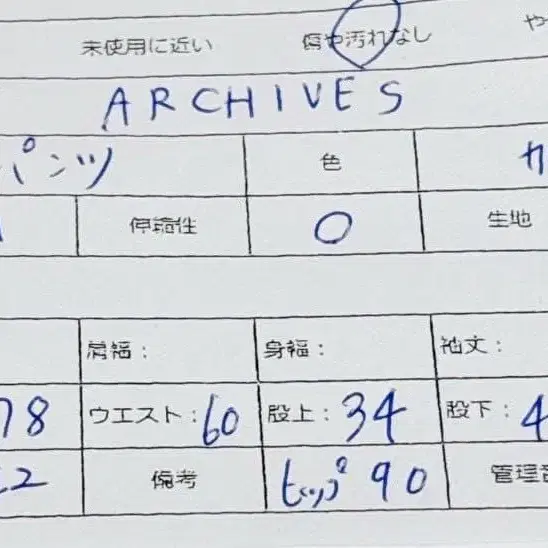 未使用に近い 傷や汚れなし や
ARCHIVES
パンツ 色 カ
伸縮性 0 生地
肩幅： 身幅： 袖丈：
78 ウエスト：60 股上：34 股下：4
2 備考 ヒップ 90 管理